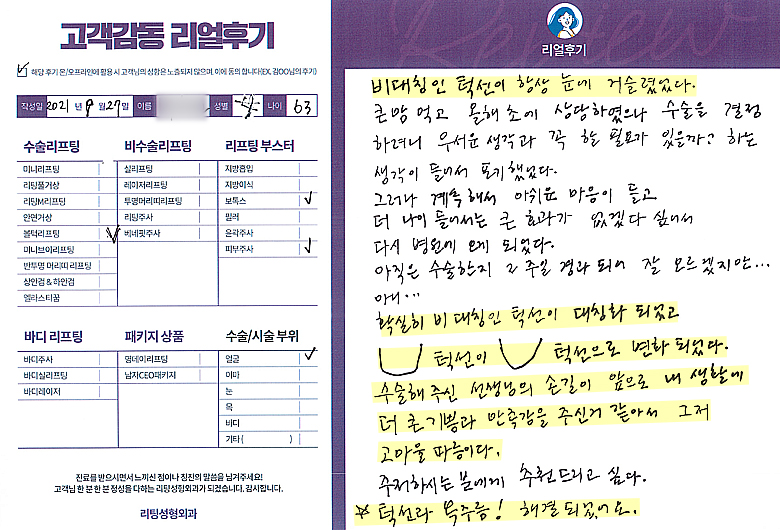 고객감동 리얼후기
해당 후기 온/오프라인에 활용 시 고객님의 성함은 노출되지 않으며, 이에 동의 합니다(EX. 김OO님의 후기)
작성일 2021 년 9 월 27 일 이름 성별 나이 63
수술리프팅
미니리프팅
리팅풀거상
리팅M리프팅
안면거상
볼턱리프팅
미니브이리프팅
반투명 머리띠 리프팅
상안검 & 하안검
엘라스티꿈
비수술리프팅
실리프팅
레이저리프팅
투명머리띠리프팅
리팅주사
베네핏주사
리프팅 부스터
지방흡입
지방이식
보톡스
필러
윤곽주사
피부주사
바디 리프팅
바디주사
바디실리프팅
바디레이저
패키지 상품
영데이리프팅
남자CEO패키지
수술/시술 부위
얼굴
이마
눈
목
바디
기타 ( )
진료를 받으시면서 느끼신 점이나 칭찬의 말씀을 남겨주세요!
고객님 한 분 한 분 정성을 다하는 리팅성형외과가 되겠습니다. 감사합니다.
리팅성형외과
Review
리얼후기
비대칭인 턱선이 항상 눈에 거슬렸었다.
큰맘 먹고 올해 초에 상담하였으나 수술을 결정
하려니 무서운 생각과 꼭 할 필요가 있을까? 하는
생각이 들어서 포기했었다.
그러나 계속해서 아쉬운 마음이 들고
더 나이 들어서는 큰 효과가 없겠다 싶어서
다시 병원에 오게 되었다.
아직은 수술한지 2주일 경과 되어 잘 모르겠지만...
아니...
확실히 비대칭인 턱선이 대칭화 되었고
턱선이 턱선으로 변화 되었다.
수술해 주신 선생님의 손길이 앞으로 내 생활에
더 큰 기쁨과 만족감을 주신거 같아서 그저
고마울 따름이다.
주저하시는 분에게 추천드리고 싶다.
☆ 턱선과 목주름! 해결 되었어요.